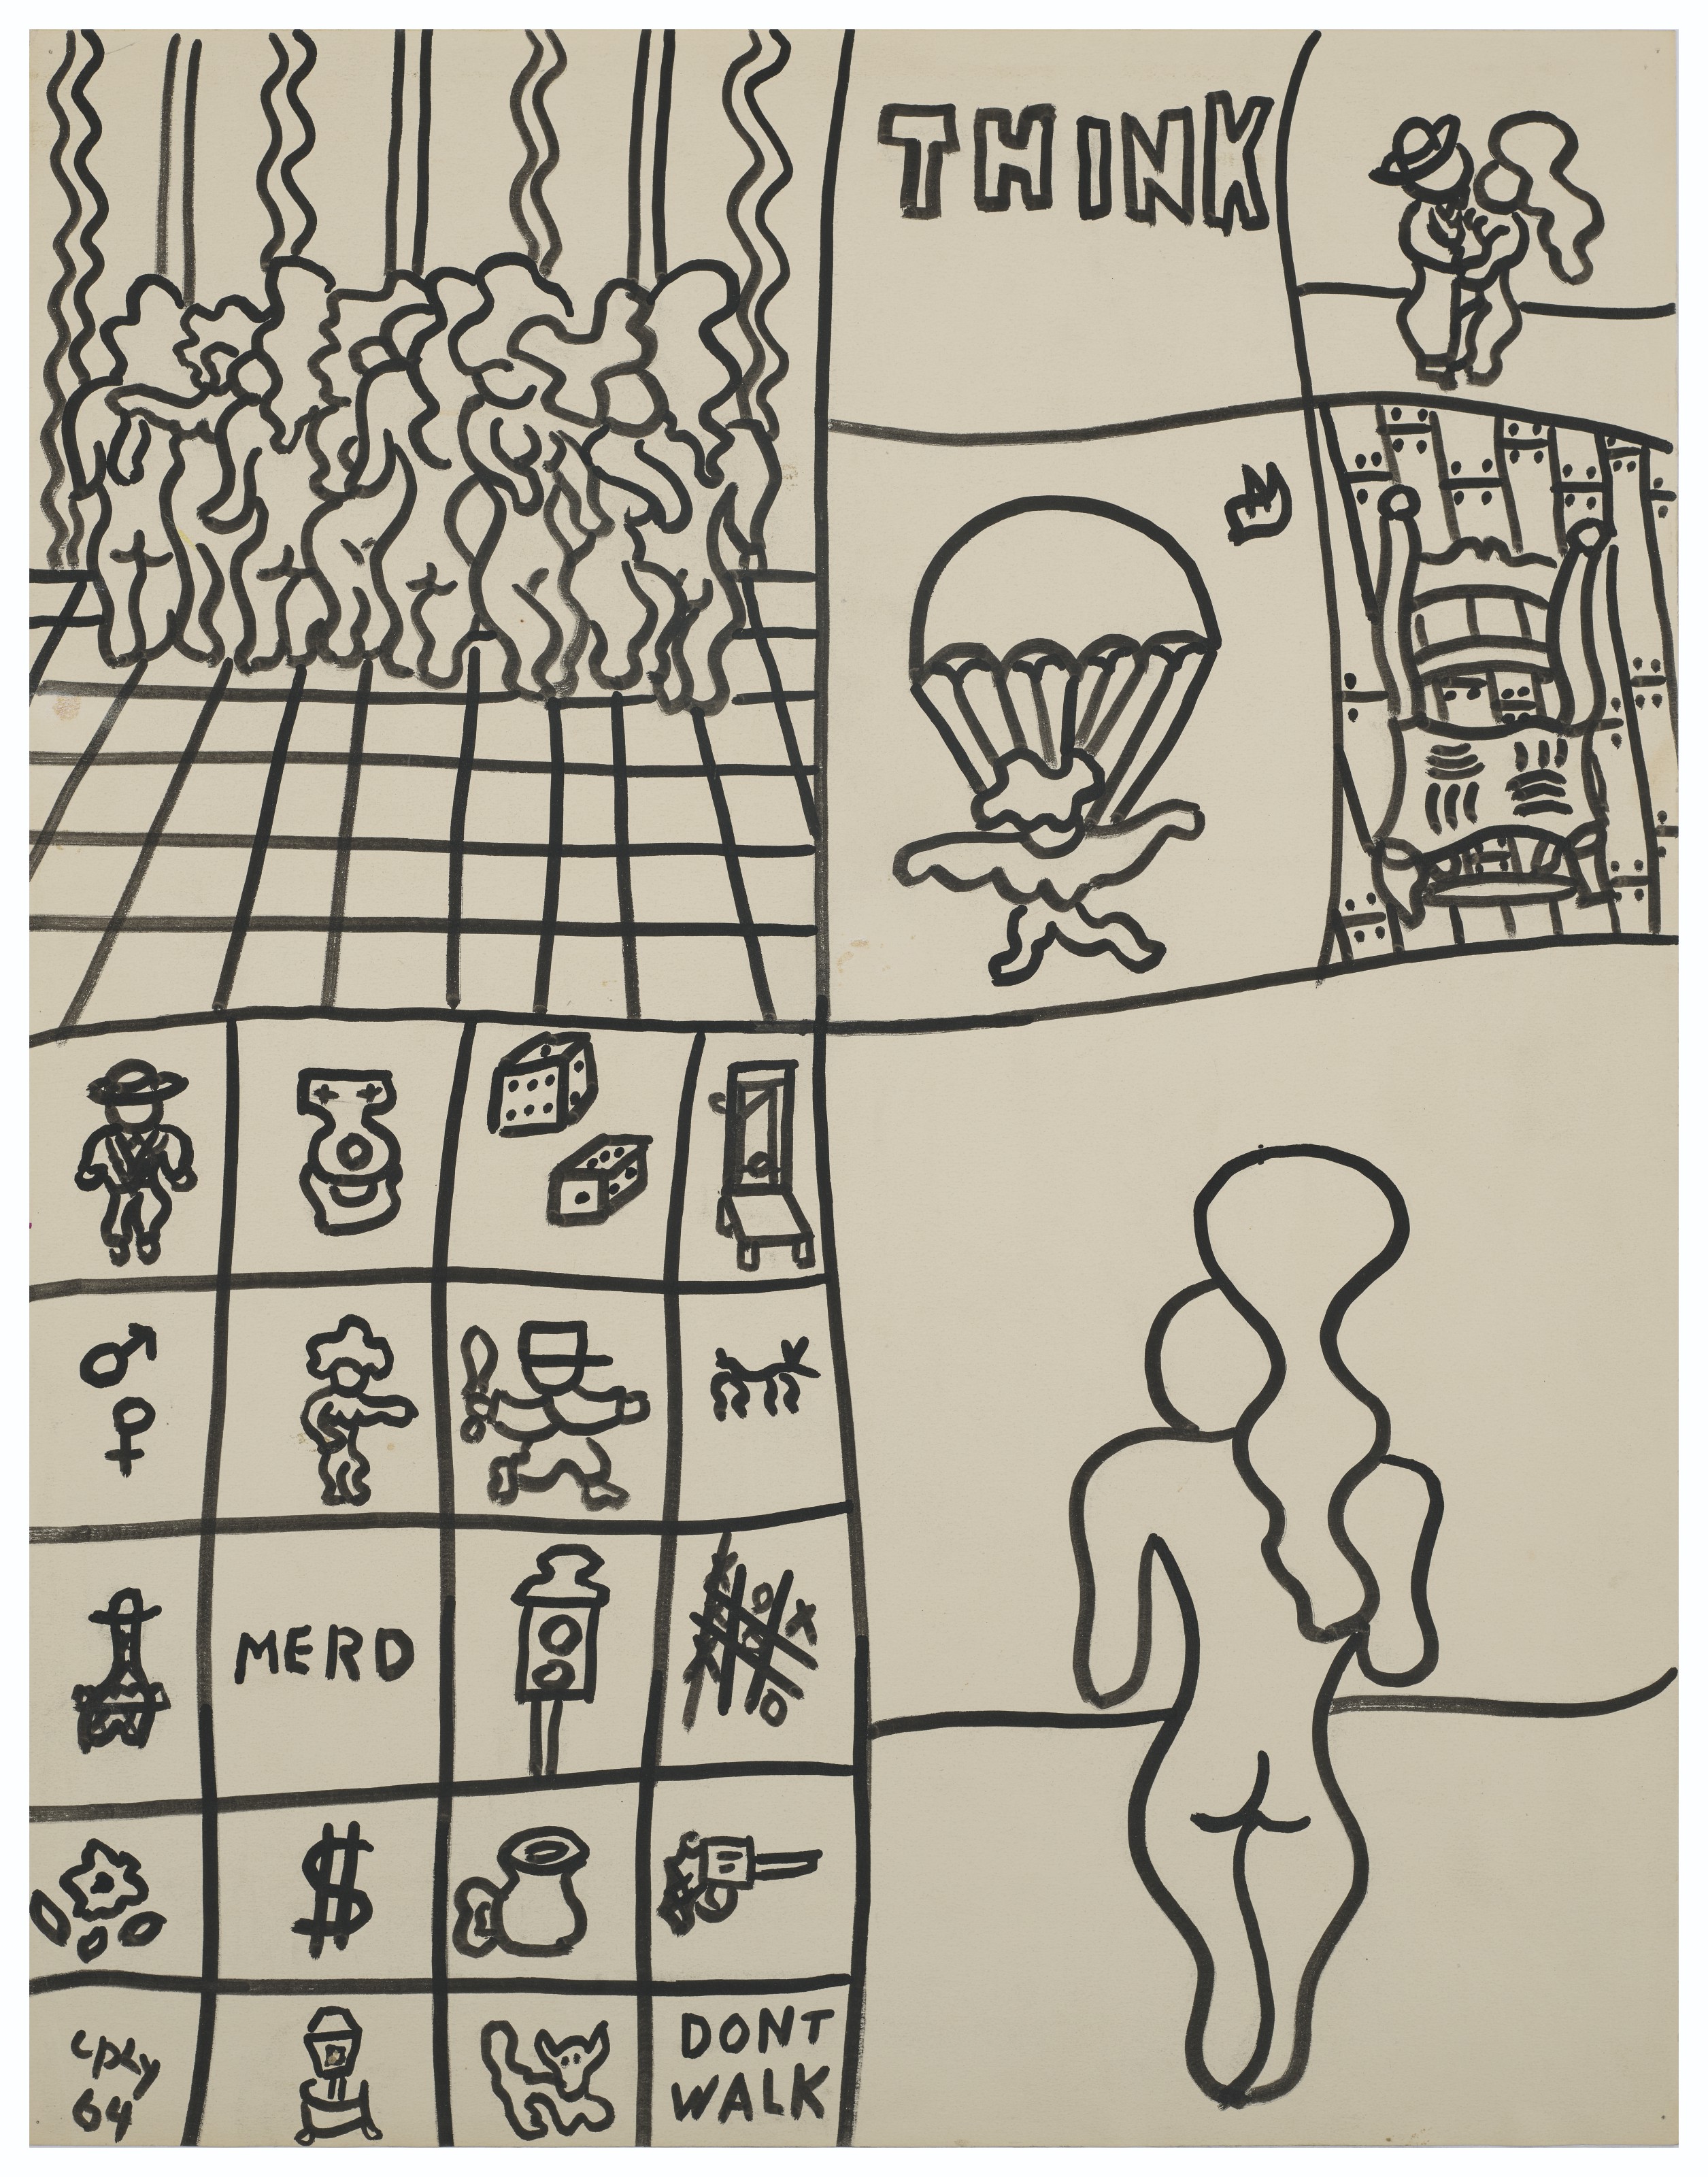 THINK
MERD
$
cply
64
DONT
WALK